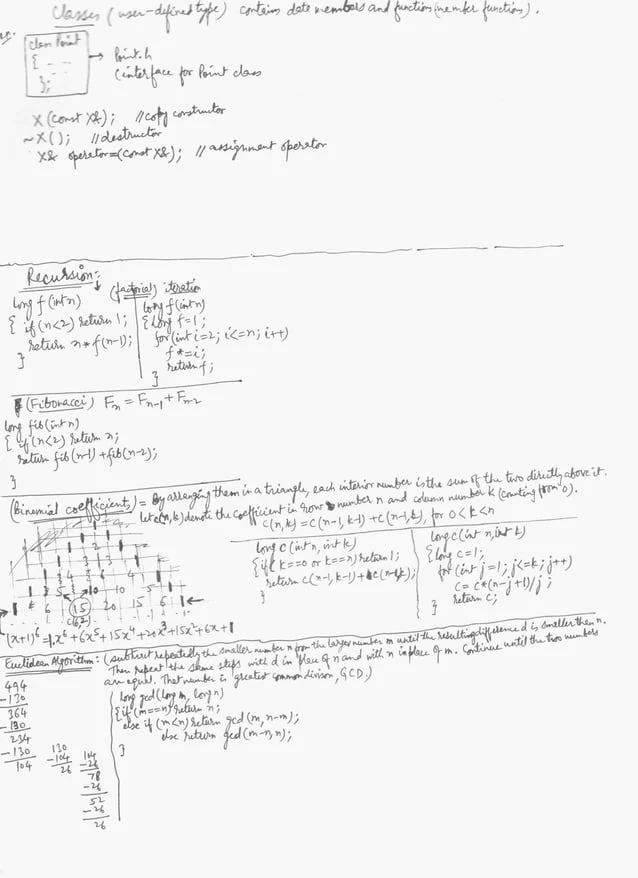 Classes (user-defined type) contains data members and function (member function).
class Point
{ - - -
- - -
};
→ Point.h
(interface for Point class
X (const X&); //copy constructor
~X(); //destructor
X& operator=(const X&); // assignment operator
Recursion:
(factorial) iteration
long f(int n)
{ if (n<2) return 1;
return n * f(n-1);
}
long f(int n)
{ long f=1;
for(int i=2; i<=n; i++)
f*=i;
return f;
}
(Fibonacci) Fn = Fn-1 + Fn-2
long fib(int n)
{ if(n<2) return n;
return fib(n-1)+fib(n-2);
}
(Binomial coefficients) = By arranging them in a triangle, each interior number is the sum of the two directly above it.
let c(n,k) denote the coefficient in row number n and column number k (counting from 0).
c(n,k) = c(n-1, k-1) + c(n-1,k), for 0<k<n
long c(int n, int k)
{if( k==0 or k==n) return 1;
return c(n-1,k-1)+c(n-1,k);
}
long c(int n, int k)
{ long c=1;
for (int j=1; j<=k; j++)
c= c*(n-j+1)/j ;
return c;
}
1 6 15 20 15 6 1
c(6,2)
(x+1)^6 = 1x^6 + 6x^5 + 15x^4 + 20x^3 + 15x^2 + 6x + 1
Euclidean Algorithm: (subtract repeatedly the smaller number n from the larger number m until the resulting difference d is smaller then n.
Then repeat the same steps with d in place of n and with n in place of m. Continue until the two numbers
are equal. That number is greatest common divison, GCD.)
494
-130
364
-130
234
-130
104
130
-104
26
104
-26
78
-26
52
-26
26
long gcd(long m, long n)
{if (m==n) return n;
else if (m<n) return gcd(m,n-m);
else return gcd(m-n,n);
}